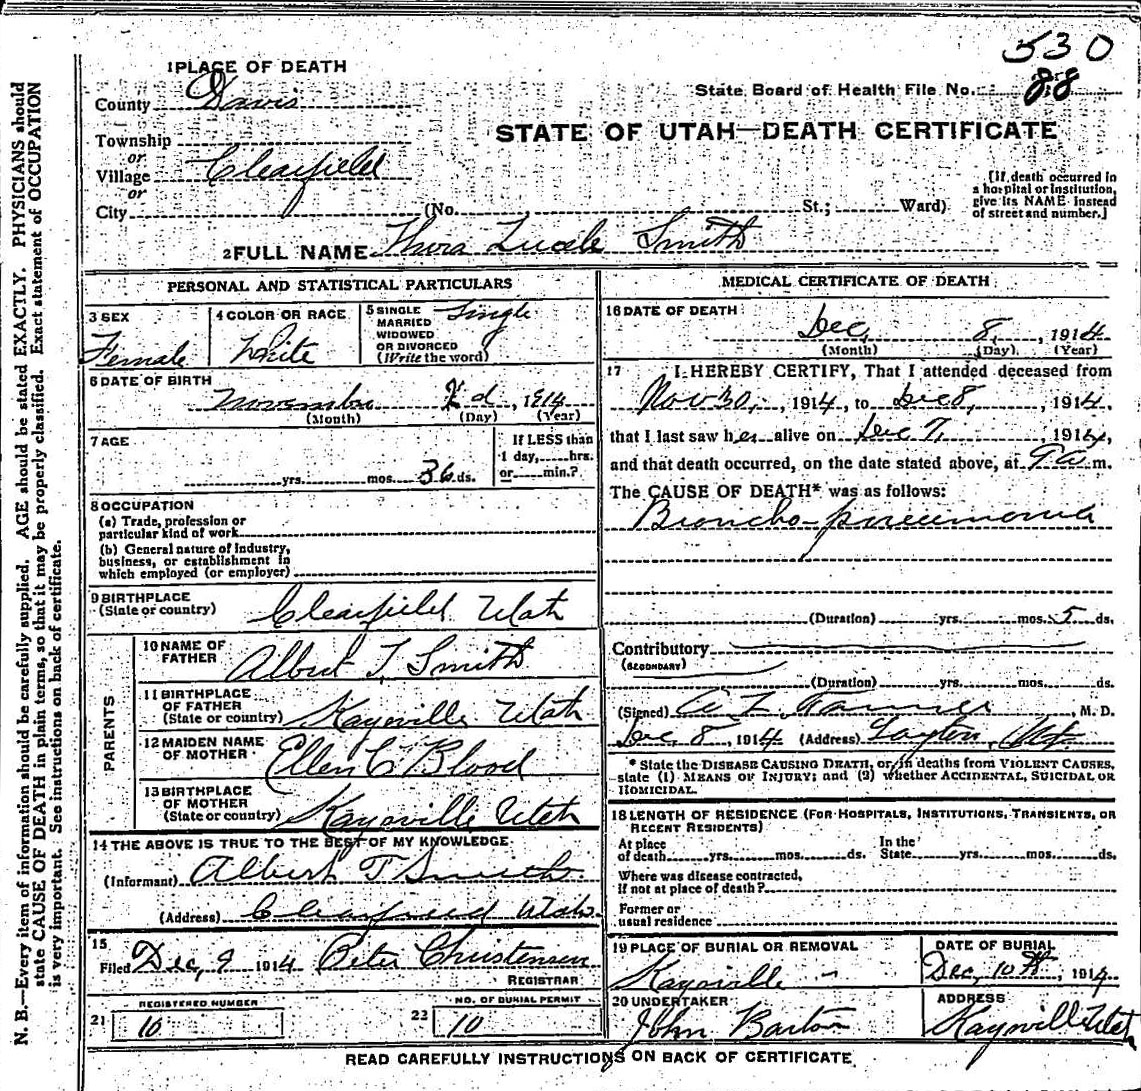 530
1 PLACE OF DEATH
State Board of Health File No. 88
County Davis
STATE OF UTAH—DEATH CERTIFICATE
Township
or
Village Clearfield
or
City (No. St.; Ward)
[If death occurred in
a hospital or institution,
give its NAME instead
of street and number.]
2 FULL NAME Thora Lucile Smith
PERSONAL AND STATISTICAL PARTICULARS
3 SEX
Female
4 COLOR OR RACE
White
5 SINGLE
MARRIED
WIDOWED
OR DIVORCED
(Write the word)
Single
6 DATE OF BIRTH
November 2d, 1914
(Month) (Day) (Year)
7 AGE
yrs. mos. 36 ds.
If LESS than
1 day, hrs.
or min.?
8 OCCUPATION
(a) Trade, profession or
particular kind of work
(b) General nature of industry,
business, or establishment in
which employed (or employer)
9 BIRTHPLACE
(State or country) Clearfield Utah
PARENTS
10 NAME OF
FATHER Albert T. Smith
11 BIRTHPLACE
OF FATHER
(State or country) Kaysville Utah
12 MAIDEN NAME
OF MOTHER Ellen C Blood
13 BIRTHPLACE
OF MOTHER
(State or country) Kaysville Utah
14 THE ABOVE IS TRUE TO THE BEST OF MY KNOWLEDGE
(Informant) Albert T Smith
(Address) Clearfield Utah.
15
Filed Dec, 9 1914 Peter Christensen
REGISTRAR
21 REGISTERED NUMBER
10
22 NO. OF BURIAL PERMIT
10
MEDICAL CERTIFICATE OF DEATH
16 DATE OF DEATH
Dec, 8, 1914
(Month) (Day) (Year)
17 I HEREBY CERTIFY, That I attended deceased from
Nov 30, 1914, to Dec 8, 1914,
that I last saw her alive on Dec 7, 1914,
and that death occurred, on the date stated above, at 9 a m.
The CAUSE OF DEATH* was as follows:
Broncho-pneumonia
(Duration) yrs. mos. 5 ds.
Contributory
(SECONDARY)
(Duration) yrs. mos. ds.
(Signed) M. D.
Dec, 8, 1914 (Address) Layton, Utah
* State the DISEASE CAUSING DEATH, or, in deaths from VIOLENT CAUSES,
state (1) MEANS OF INJURY; and (2) whether ACCIDENTAL, SUICIDAL OR
HOMICIDAL.
18 LENGTH OF RESIDENCE (FOR HOSPITALS, INSTITUTIONS, TRANSIENTS, OR
RECENT RESIDENTS)
At place In the
of death yrs. mos. ds. State yrs. mos. ds.
Where was disease contracted,
if not at place of death?
Former or
usual residence
19 PLACE OF BURIAL OR REMOVAL
Kaysville
DATE OF BURIAL
Dec, 10th, 1914
20 UNDERTAKER
John Barton
ADDRESS
Kaysville Utah
READ CAREFULLY INSTRUCTIONS ON BACK OF CERTIFICATE
N. B.—Every item of information should be carefully supplied. AGE should be stated EXACTLY. PHYSICIANS should
state CAUSE OF DEATH in plain terms, so that it may be properly classified. Exact statement of OCCUPATION
is very important. See instructions on back of certificate.